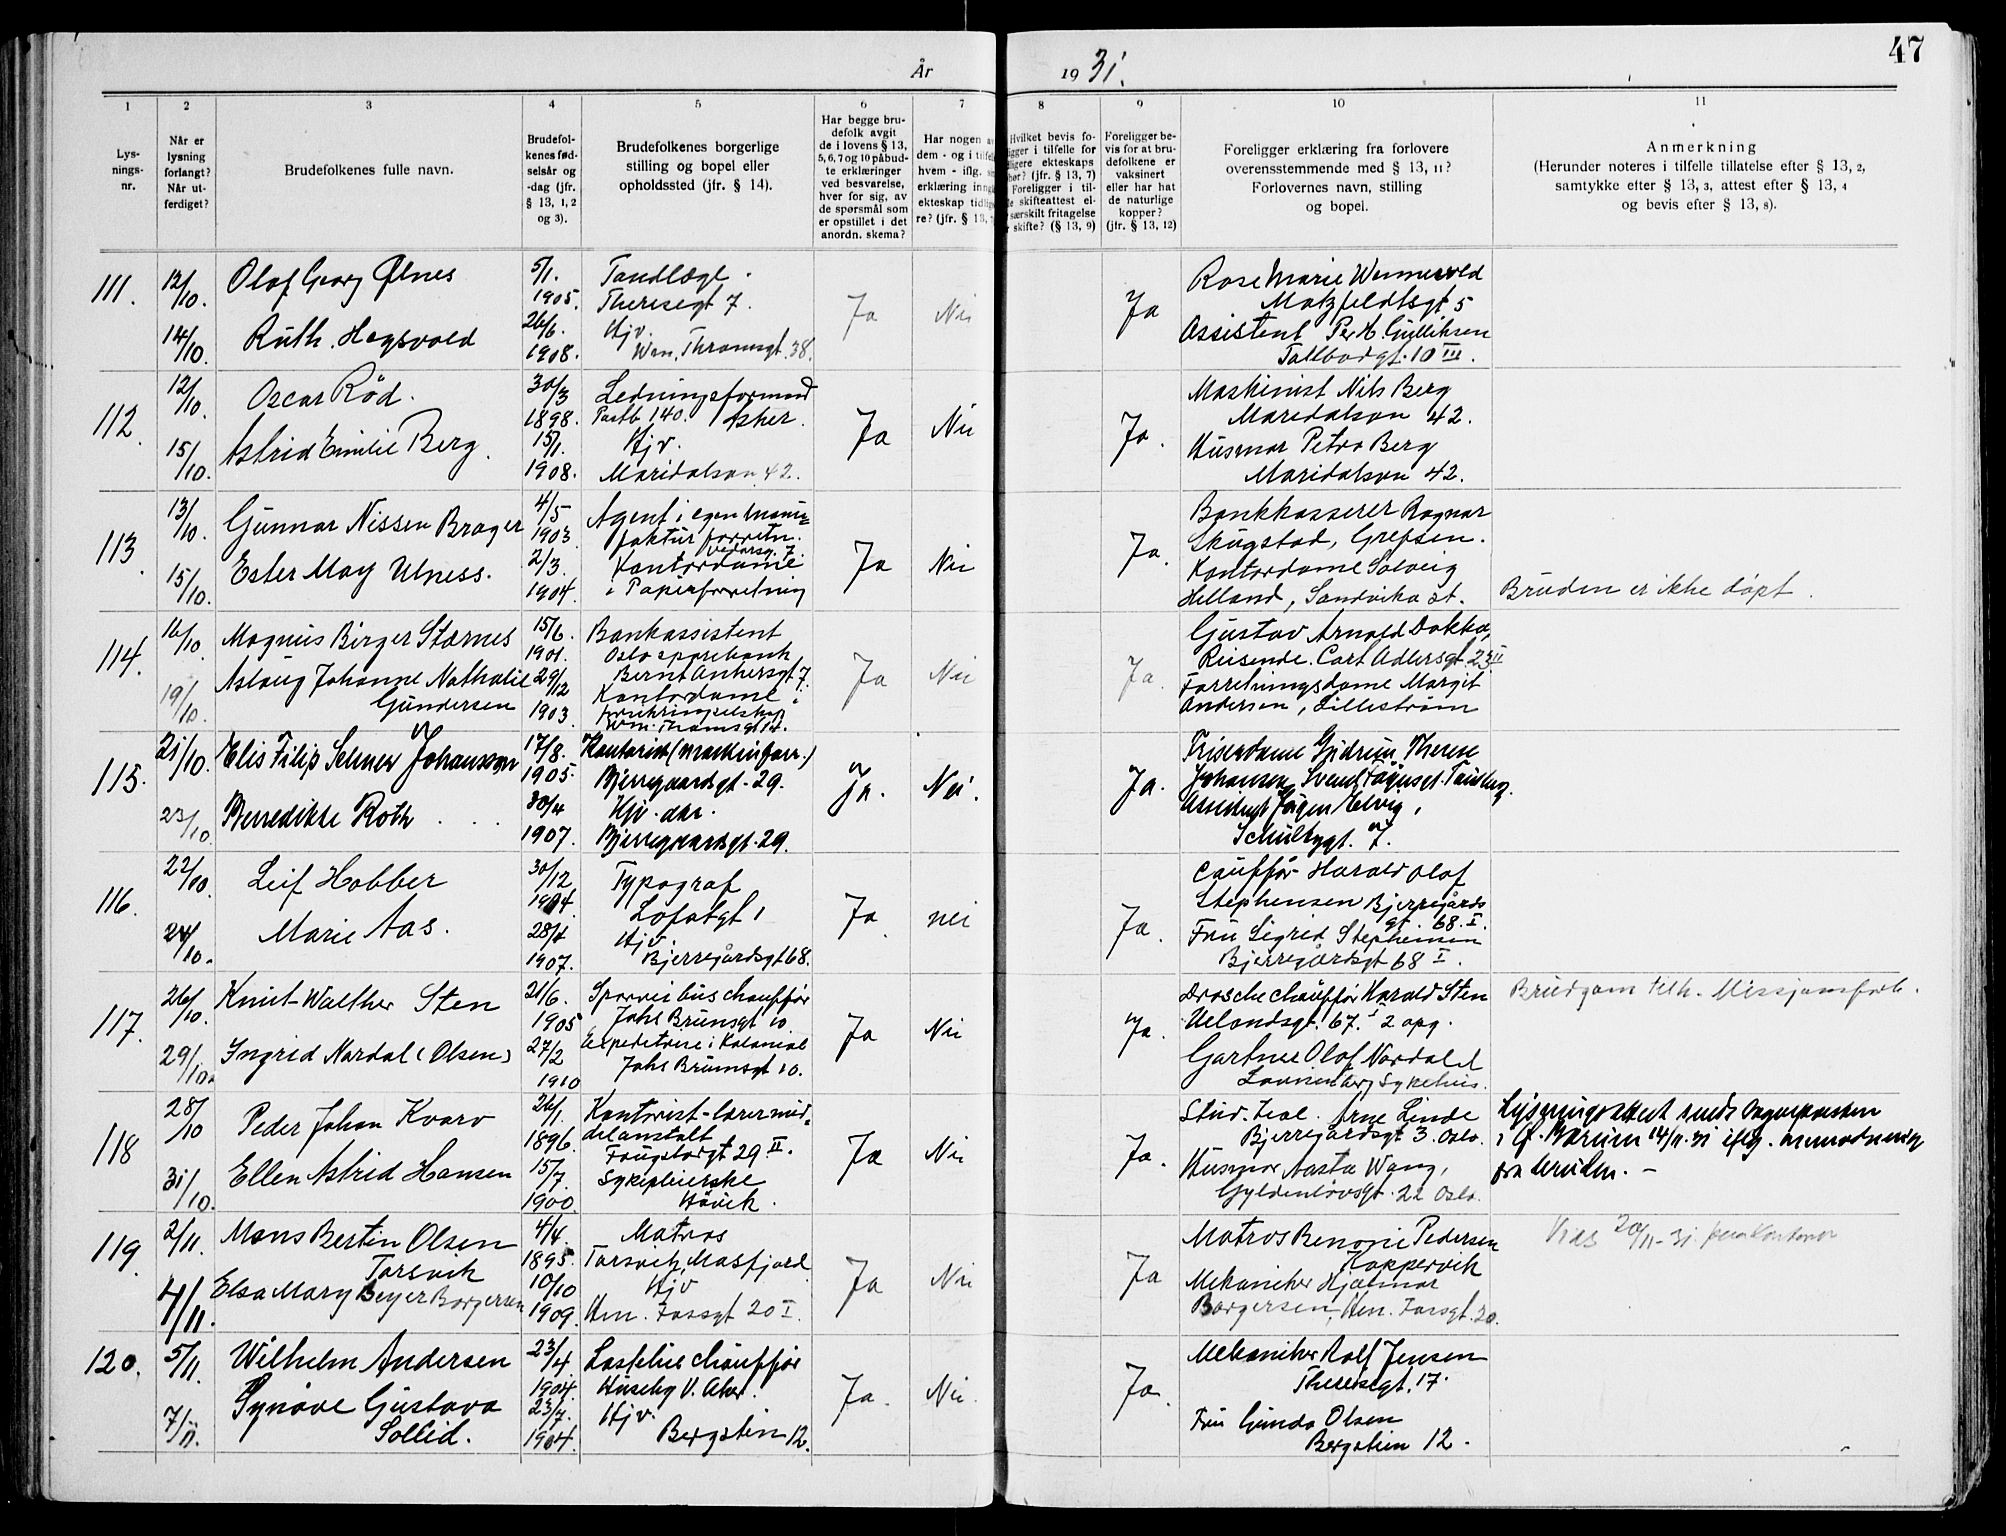 47
År
19 31.
1
2
3
4
5
6
7
8
9
10
11
Lys-
nings-
nr.
Når er
lysning
forlangt?
Når ut-
ferdiget?
Brudefolkenes fulle navn.
Brudefol-
kenes fød-
selsår og
-dag (jfr.
§ 13, 1, 2
og 3).
Brudefolkenes borgerlige
stilling og bopel eller
opholdssted (jfr. § 14).
Har begge bru-
defolk avgit
de i lovens § 13,
5, 6, 7 og 10 påbud-
te erklæringer
ved besvarelse,
hver for sig, av
de spørsmål som
er opstillet i det
anordn. skema?
Har nogen
dem - og i
hvem - iflg.
erklæring
ekteskap
re? (jfr. § 13,
Hvilket bevis fo-
i tilfelle for
ekteskaps
(jfr. § 13, 7)
Foreligger i til-
skifteattest el-
særskilt fritagelse
skifte? (§ 13, 9)
Foreligger be-
vis for at bru-
defolkene er
vaksinert
eller har hat
de naturlige
kopper?
(jfr. § 13, 12)
Foreligger erklæring fra forlovere
overensstemmende med § 13, 11?
Forlovernes navn, stilling
og bopel.
Anmerkning
(Herunder noteres i tilfelle tillatelse efter § 13, 2,
samtykke efter § 13, 3, attest efter § 13, 4
og bevis efter § 13, 8).
111.
12/10.
14/10.
Olaf Georg Ølnes
Ruth Hogsvold
5/1.
1905.
26/6.
1908.
Tandlæge.
Theresegt 7.
Hjv.
Wm. Thranesgt. 38.
Ja
Nei
Ja
Rose Marie
5
Assistent Per H. Gulliksen
10 III.
112.
12/10.
15/10.
Oscar Rød.
Astrid Emilie Berg.
30/3
1898.
15/1.
1908.
Ledningsformand
Postb 140. Asker.
Hjv.
Maridalsvn 42.
Ja
Nei
Ja.
Maskinist Nils Berg
Maridalsvn 42.
Husmor Petra Berg
Maridalsvn 42.
113.
13/10.
15/10.
Gunnar Nissen Brager
Ester May Ulness.
4/5
1903
2/3.
1904.
Agent i egen manu-
faktur forretn.
7.
Kontordame
i Papirforretning
Ja
Nei
Ja.
Bankkasserer Ragnar
Skugstad, Grefsen.
Kontordame Solveig
Helland, Sandvika st.
Bruden er ikke døpt.
114.
16/10.
19/10.
Magnus Birger Stærnes
Aslaug Johanne Nathalie
Gundersen
15/6.
1901.
29/12
1903.
Bankassistent
Oslo sparebank
Bernt Ankersgt 7.
Kontordame i
forsikringselskap
Wm. Thranesgt 14.
Ja
Nei
Ja.
Gustav Arnold Dokka,
Reisende. Cort Adlersgt. 23 II
Forretningsdame Margit
Andersen, Lillestrøm
115.
21/10.
23/10.
Elis Filip Selmer Johansson
Benedikte Roth
17/8.
1905
30/4
1907.
Kontorist (maskinforr.)
Bjerregaardsgt. 29.
Hjv. do.
Bjerregaardsgt. 29.
Ja.
Nei.
Ja.
Frisørdame Gudrun Therese
Johansen
Assistent Jørgen Helvig,
Schultzgt. 7.
116.
22/10.
24/10.
Leif Hobber
Marie Aas.
30/12
1904.
28/4
1907.
Typograf
Lofotgt 1
Hjv.
Bjerregårdsgt 68.
Ja.
nei
Ja.
Chauffør Harald Olaf
Stephensen Bjerregårds
gt. 68. I.
Fru Sigrid Stephensen
Bjerregårdsgt 68 I.
117.
26/10.
29/10.
Knut Walther Sten
Ingrid Nordal (Olsen)
21/6.
1905
27/2
1910
Sporveibus chauffør
Johs Brunsgt 10.
Expeditrise i Kolonial
Johs Brunsgt 10.
Ja
Nei
Ja.
Drosche chauffør Harald Sten
Uelandsgt. 67. I 2 opg.
Gartner Olof Nordal
Lovisenberg Sykehus.
Brudgom tilh. Missjonsforb.
118
28/10
31/10.
Peder Johan Kvarv
Ellen Astrid Hansen
26/1.
1896.
15/7.
1900.
Kontorist - læremid-
delanstalt
29 II.
Sykepleierske
Høvik.
Ja
Nei
Ja.
Stud. real. Arne Linde
Bjerregårdsgt 3. Oslo.
Husmor Aasta Wang,
Gyldenløvsgt. 22 Oslo.
Lysningsattest sendt Sognepresten
i Ø. Bærum 14/11. 31 iflg. anmodning
fra bruden. -
119.
2/11.
4/11.
Mons Bertin Olsen
Torsvik
Elsa Mary Beyer Borgersen
4/4.
1895.
10/10
1909.
Matros
Torsvik, Masfjord
Hjv
Hm. Fossgt 20 I.
Ja
Nei
Ja
Matros Benoni Pedersen
Koppervik
Mekaniker Hjalmar
Borgersen, Hm. Fossgt. 20.
Viet 20/11-31.
120.
5/11.
7/11.
Wilhelm Andersen
Synøve Gustava
Sollid.
23/4
1904.
23/7.
1904.
Lastebil chauffør
Huseby V. Aker.
Hjv.
Bergstien 12.
Ja.
Nei.
Ja.
Mekaniker Rolf Jensen
Theresegt. 17.
Fru Gunda Olsen
Bergstien 12.